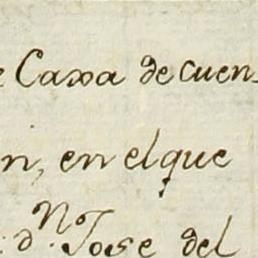 e Caxa de cuen-
n, en el que
: d.ⁿ Jose del